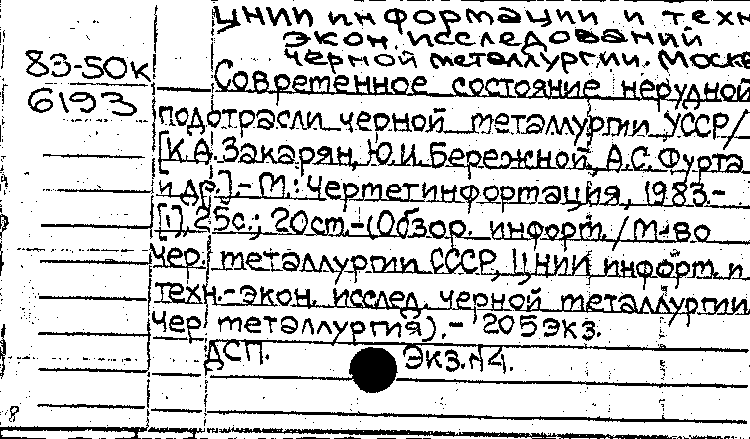 ЦНИИ информации и техн
экон. исследований
черной металлургии. Москв
83-50к
6193
Современное состояние нерудной
подотрасли черной металлургии УССР/
[К.А. Закарян, Ю.И. Бережной, А.С. Фурта
и др.].- М.: Черметинформация, 1983.-
[1], 25с.; 20см.-(Обзор. информ. / М-во
чер. металлургии СССР, ЦНИИ информ. и
техн.-экон. исслед. черной металлургии
Чер металлургия).- 205экз.
ДСП. Экз.№4.
8